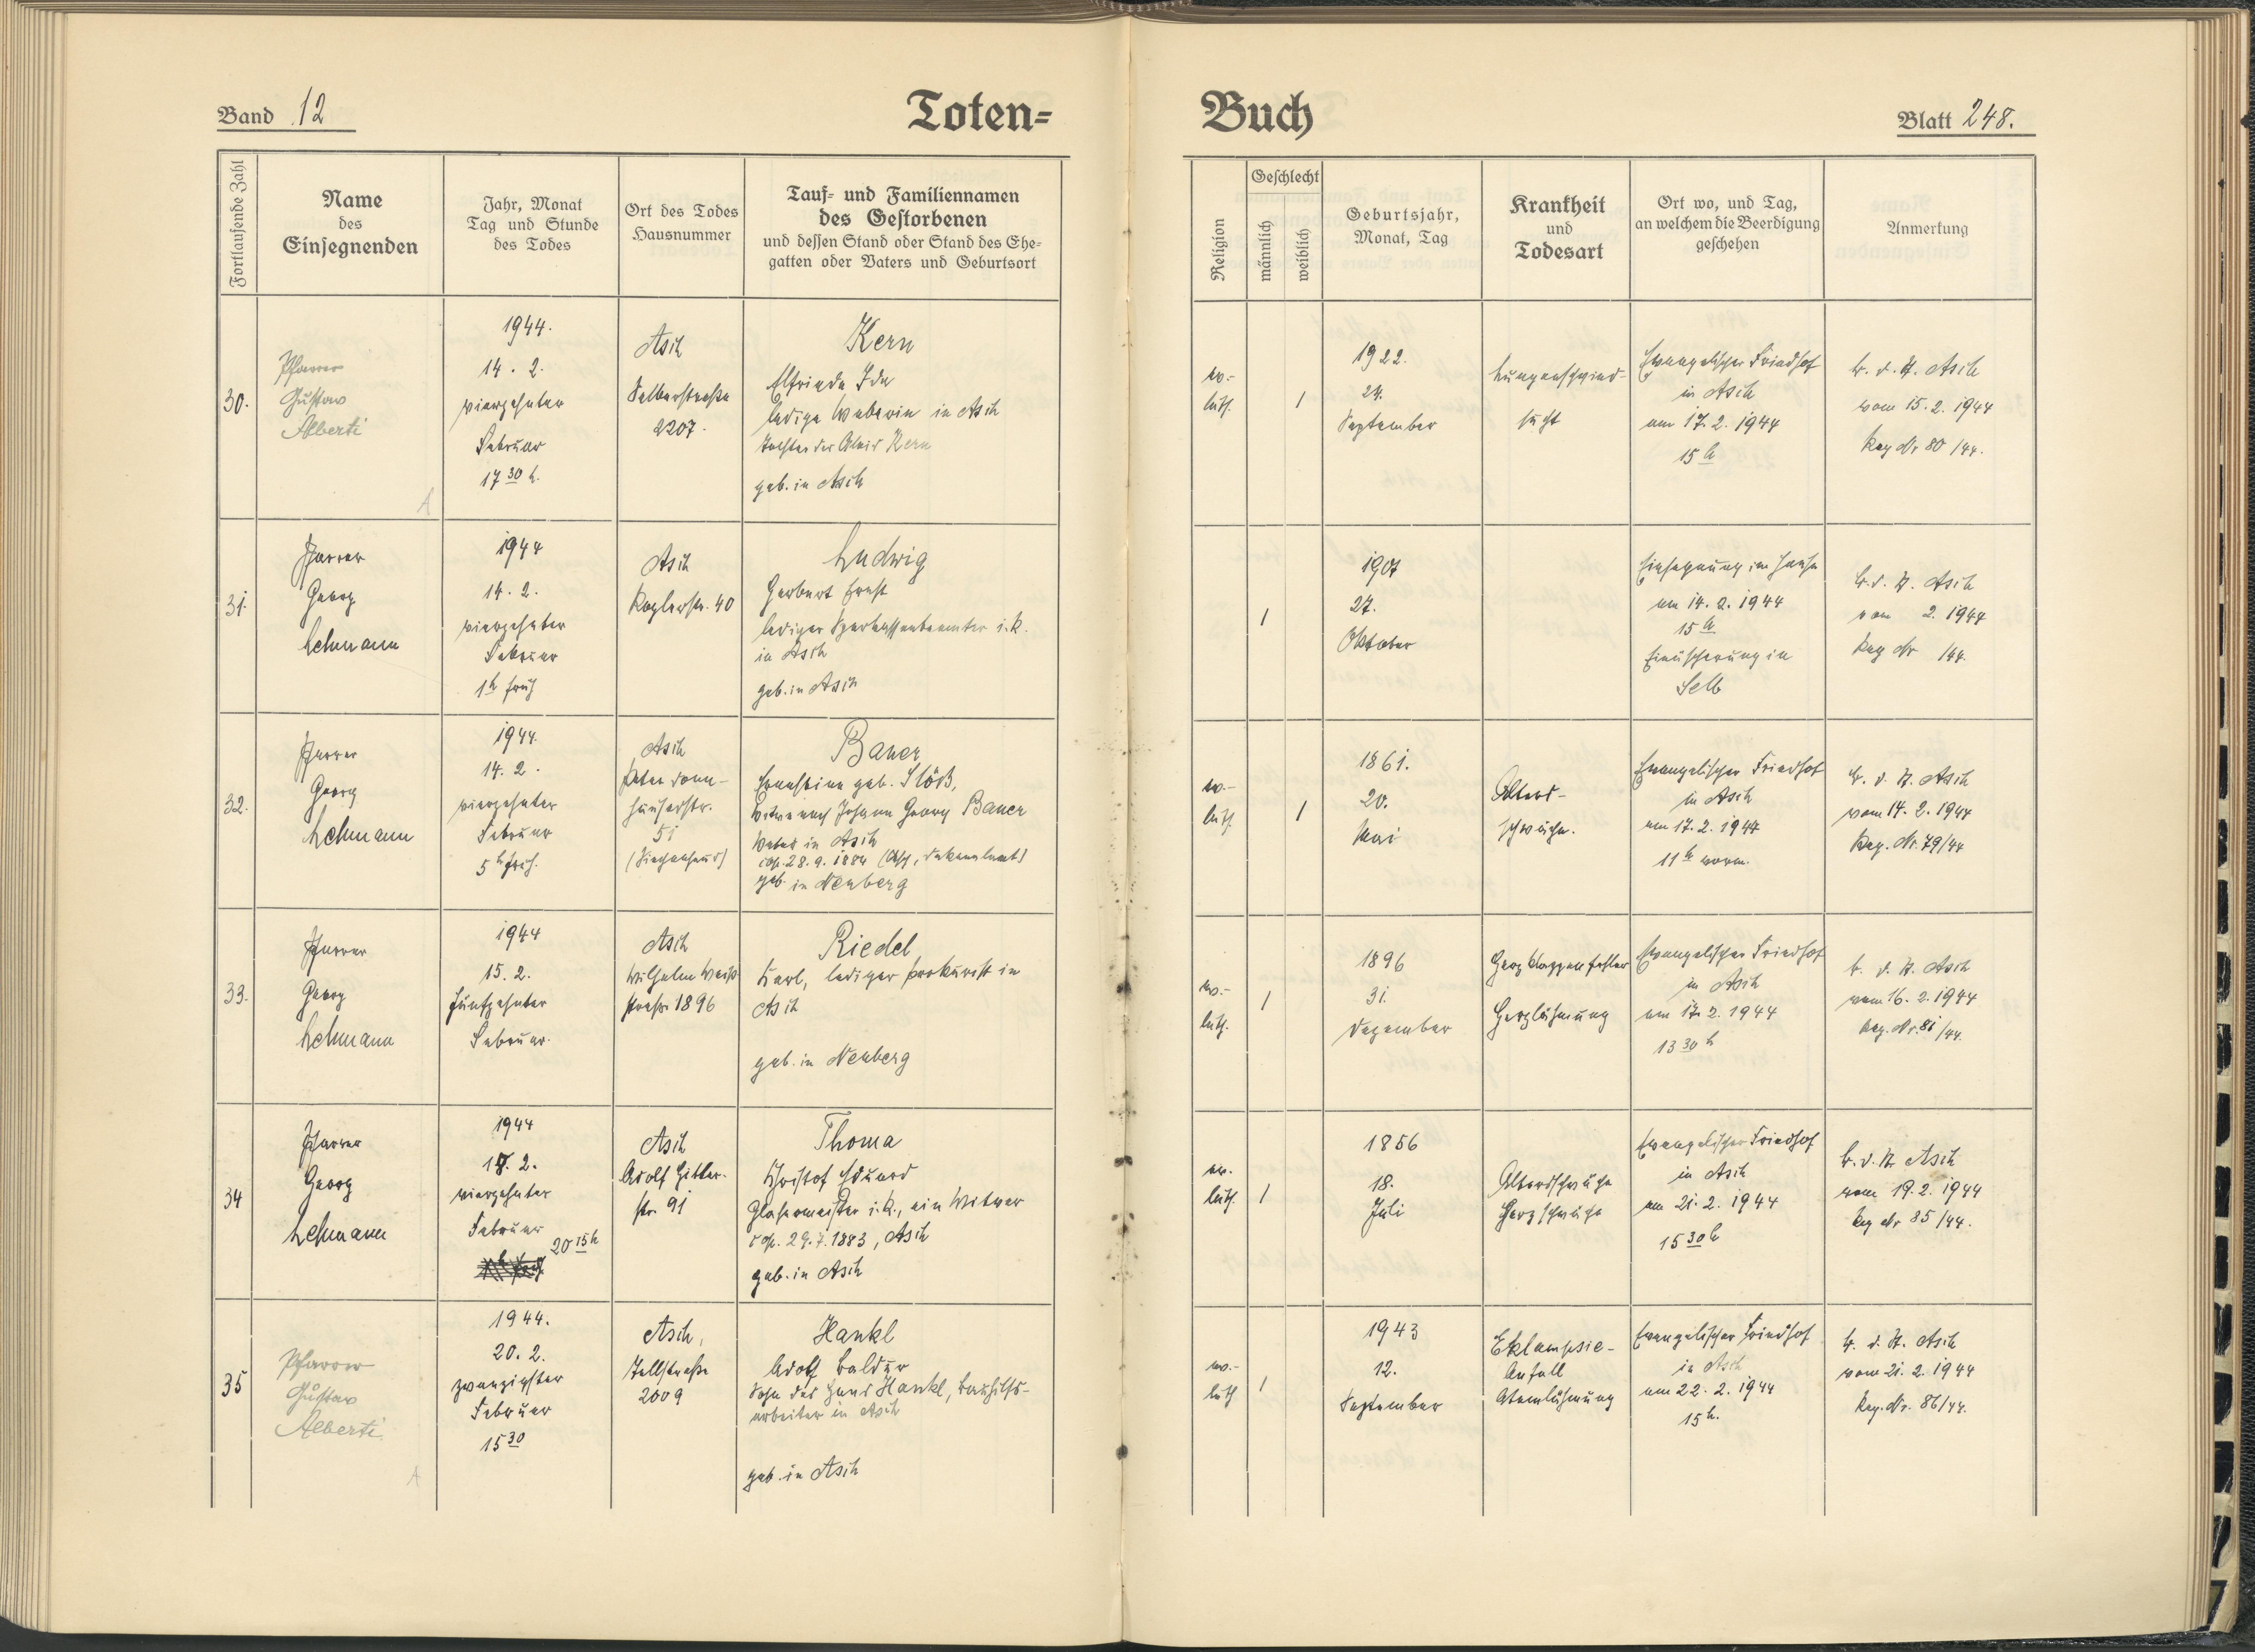 Band 12
Toten=
Buch
Blatt 248.
Fortlaufende Zahl
Name
des
Einsegnenden
Jahr, Monat
Tag und Stunde
des Todes
Ort des Todes
Hausnummer
Tauf- und Familiennamen
des Gestorbenen
und dessen Stand oder Stand des Ehe-
gatten oder Vaters und Geburtsort
Religion
Geschlecht
männlich
weiblich
Geburtsjahr,
Monat, Tag
Krankheit
und
Todesart
Ort wo, und Tag,
an welchem die Beerdigung
geschehen
Anmerkung
30.
Pfarrer
Gustav
Alberti
A
1944.
14. 2.
vierzehnter
Februar
17 30 h.
Asch
Selberstraße
2207.
Kern
Elfriede Ida
ledige Weberin in Asch
Tochter des Alois Kern
geb. in Asch
ev.-
luth.
1
1922.
24.
September
Lungenschwind-
sucht
Evangelischer Friedhof
in Asch
am 17. 2. 1944
15 h
B. d. St. Asch
vom 15. 2. 1944
Reg Nr 80/44.
31.
Pfarrer
Georg
Lehmann
1944
14. 2.
vierzehnter
Februar
1 h früh
Asch
Roglerstr. 40
Ludwig
Herbert Ernst
lediger Sparkassenbeamter i. R.
in Asch
geb. in Asch
1
1907
27.
Oktober
Einsegnung im Hause
am 14. 2. 1944
15 h
Einäscherung in
Selb
B. d. St. Asch
vom 2. 1944
Reg Nr /44.
32.
Pfarrer
Georg
Lehmann
1944.
14. 2.
vierzehnter
Februar
5 h früh.
Asch
Peter Donn-
häuserstr.
51
(Siechenhaus)
Bauer
Ernestine geb. Stöß,
Witwe nach Johann Georg Bauer
Weber in Asch
cop. 28. 9. 1884 (Asch, Dekanalamt)
geb. in Neuberg
ev.-
luth.
1
1861.
20.
Mai
Alters-
schwäche.
Evangelischer Friedhof
in Asch
am 17. 2. 1944
11 h vorm.
B. d. St. Asch
vom 14. 2. 1944
Reg. Nr. 79/44
33.
Pfarrer
Georg
Lehmann
1944
15. 2.
fünfzehnter
Februar.
Asch
Wilhelm Weiß
straße 1896
Riedel
Karl, lediger Prokurist in
Asch
geb. in Neuberg
ev.-
luth.
1
1896
31.
Dezember
Herzklappenfehler
Herzlähmung
Evangelischer Friedhof
in Asch
am 17. 2. 1944
13 30 h
B. d. St. Asch
vom 16. 2. 1944
Reg. Nr. 81/44.
34
Pfarrer
Georg
Lehmann
1944
18. 2.
vierzehnter
Februar
20 15 h
Asch
Adolf Hitler-
str. 91
Thoma
Christof Eduard
Glasermeister i. R., ein Witwer
cop. 29. 7. 1883, Asch
geb. in Asch
ev.
luth.
1
1856
18.
Juli
Altersschwäche
Herzschwäche
Evangelischer Friedhof
in Asch
am 21. 2. 1944
15 30 h
B. d. St. Asch
vom 19. 2. 1944
Reg Nr 85/44.
35
Pfarrer
Gustav
Alberti
A
1944.
20. 2.
zwanzigster
Februar
15 30
Asch,
Tellstraße
2009
Hankl
Adolf Baldur
Sohn des Hans Hankl, Bauhilfs-
arbeiter in Asch
geb. in Asch
ev.-
luth
1
1943
12.
September
Eklampsie-
Anfall
Atemlähmung
Evangelischer Friedhof
in Asch
am 22. 2. 1944
15 h.
B. d. St. Asch
vom 21. 2. 1944
Reg. Nr. 86/44.